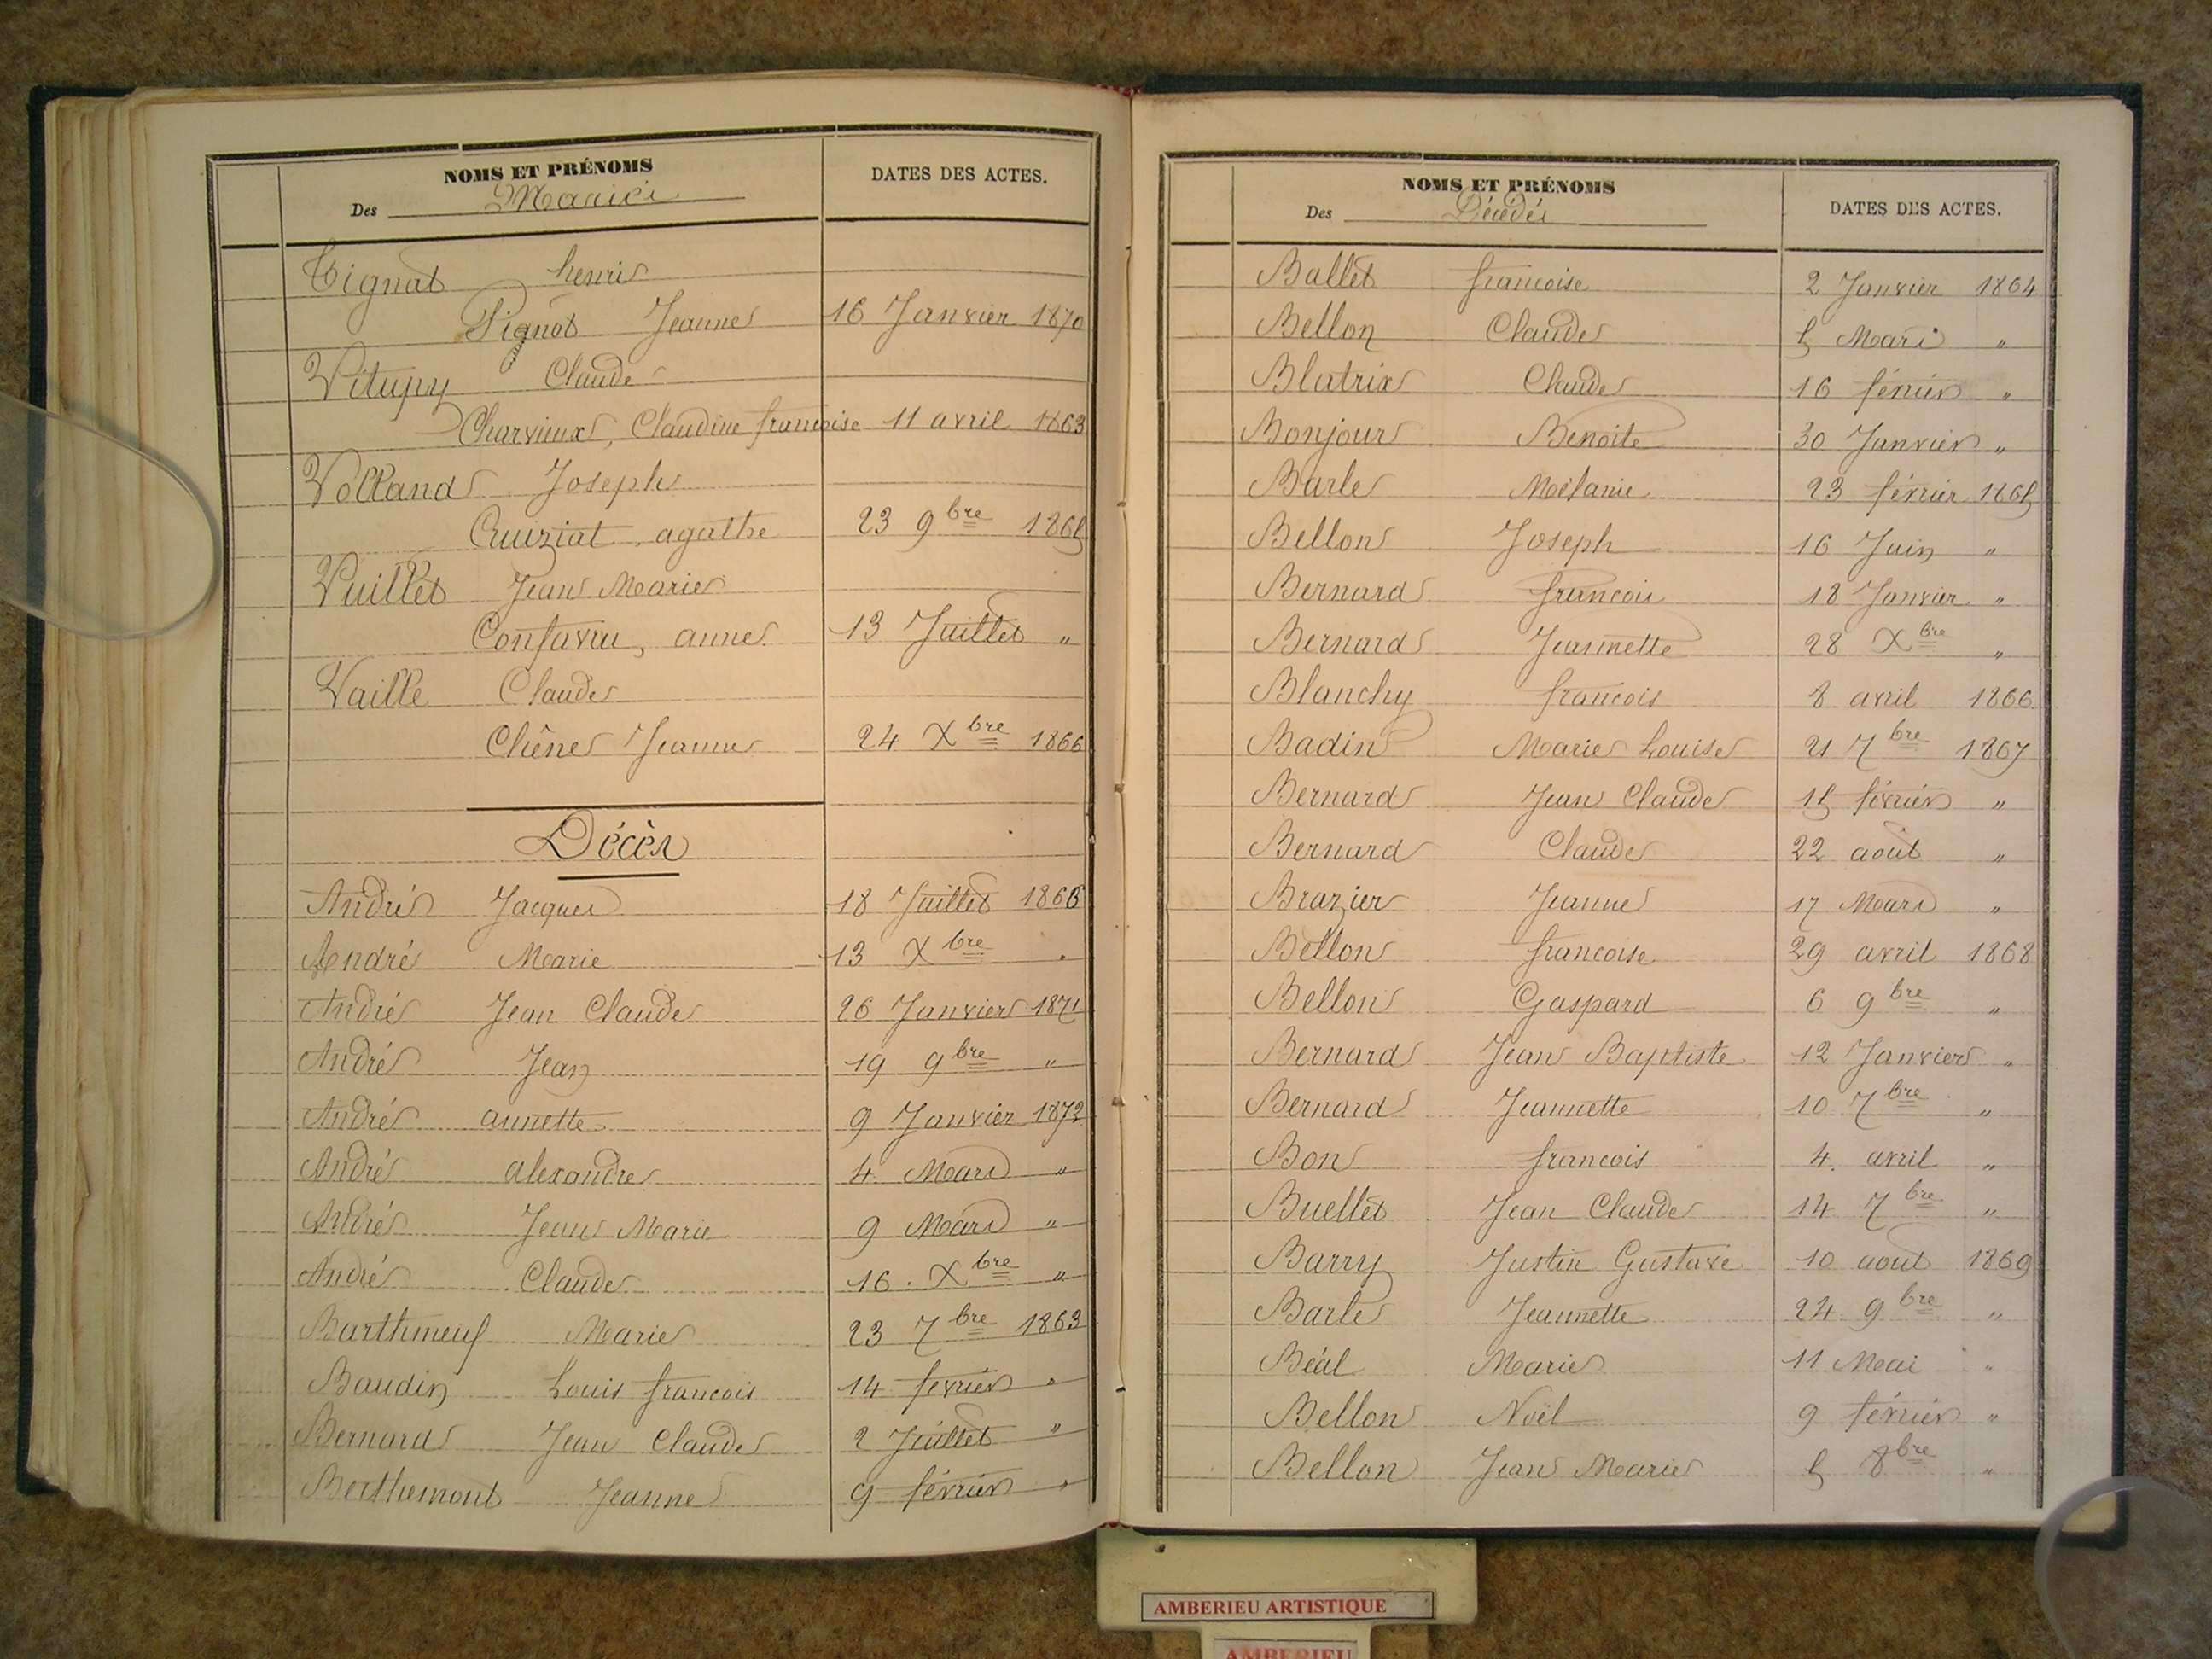 NOMS ET PRÉNOMS
Des Mariés
DATES DES ACTES.
Tignat henri
Pignot Jeanne 16 Janvier 1870
Vitupy Claude
Charvieux, Claudine francoise 11 avril 1863
Volland Joseph
Cruiziat agathe 23 9bre 1865
Vuillet Jean Marie
Confavru, anne 13 Juillet "
Vaille Claude
Chêne Jeanne 24 Xbre 1866
Décès
André Jacques 18 Juillet 1866
André Marie 13 Xbre "
André Jean Claude 26 Janvier 1871
André Jean 19 9bre "
André annette 9 Janvier 1872
André alexandre 4 Mars "
André Jean Marie 9 Mars "
André Claude 16 Xbre "
Barthmeuf Marie 23 7bre 1863
Baudin Louis francois 14 fevrier "
Bernard Jean Claude 2 Juillet "
Berthemont Jeanne 9 février "
NOMS ET PRÉNOMS
Des Décédés
DATES DES ACTES.
Ballet francoise 2 Janvier 1864
Bellon Claude 5 Mars "
Blatrix Claude 16 février "
Bonjour Benoite 30 Janvier "
Barle Mélanie 23 février 1865
Bellon Joseph 16 Juin "
Bernard francois 18 Janvier "
Bernard Jeannette 28 Xbre "
Blanchy francois 8 avril 1866
Badin Marie Louise 21 7bre 1867
Bernard Jean Claude 15 février "
Bernard Claude 22 août "
Brazier Jeanne 17 Mars "
Bellon francoise 29 avril 1868
Bellon Gaspard 6 9bre "
Bernard Jean Baptiste 12 Janvier "
Bernard Jeannette 10 7bre "
Bon francois 4. avril "
Buellet Jean Claude 14 7bre "
Barry Justin Gustave 10 aout 1869
Barle Jeannette 24 9bre "
Béal Marie 11 Mai "
Bellon Noël 9 février "
Bellon Jean Marie 5 8bre "
AMBERIEU ARTISTIQUE
AMBERIEU